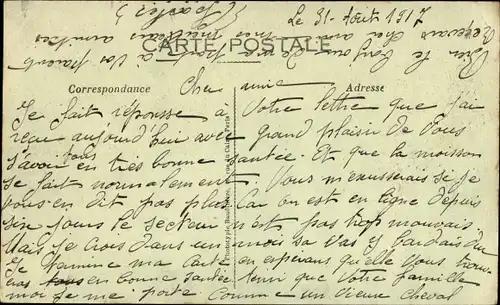 Le 31 Août 1917
CARTE POSTALE
Correspondance
Adresse
Cher amie
Je fait réponsse à Votre lettre que j'ai
reçu aujourd'hui avec grand plaisir de Vous
s'avoir tous en très bonne santée. Et que la moisson
se fait normalement. Vous m'exusserais si je
vous en dit pas plus Car on est en ligne depuis
six jours le secteur n'est pas trop mauvais
Mais je crois dans un mois sa vas y barder dur
Je termine ma carte en esperant qu'elle Vous trouv
eras en bonne santée que Votre famille
moi je me porte Comme un vieux cheval
Rien le bonjour à Vos parents
Recevais cher amie mes meilleurs amitiées